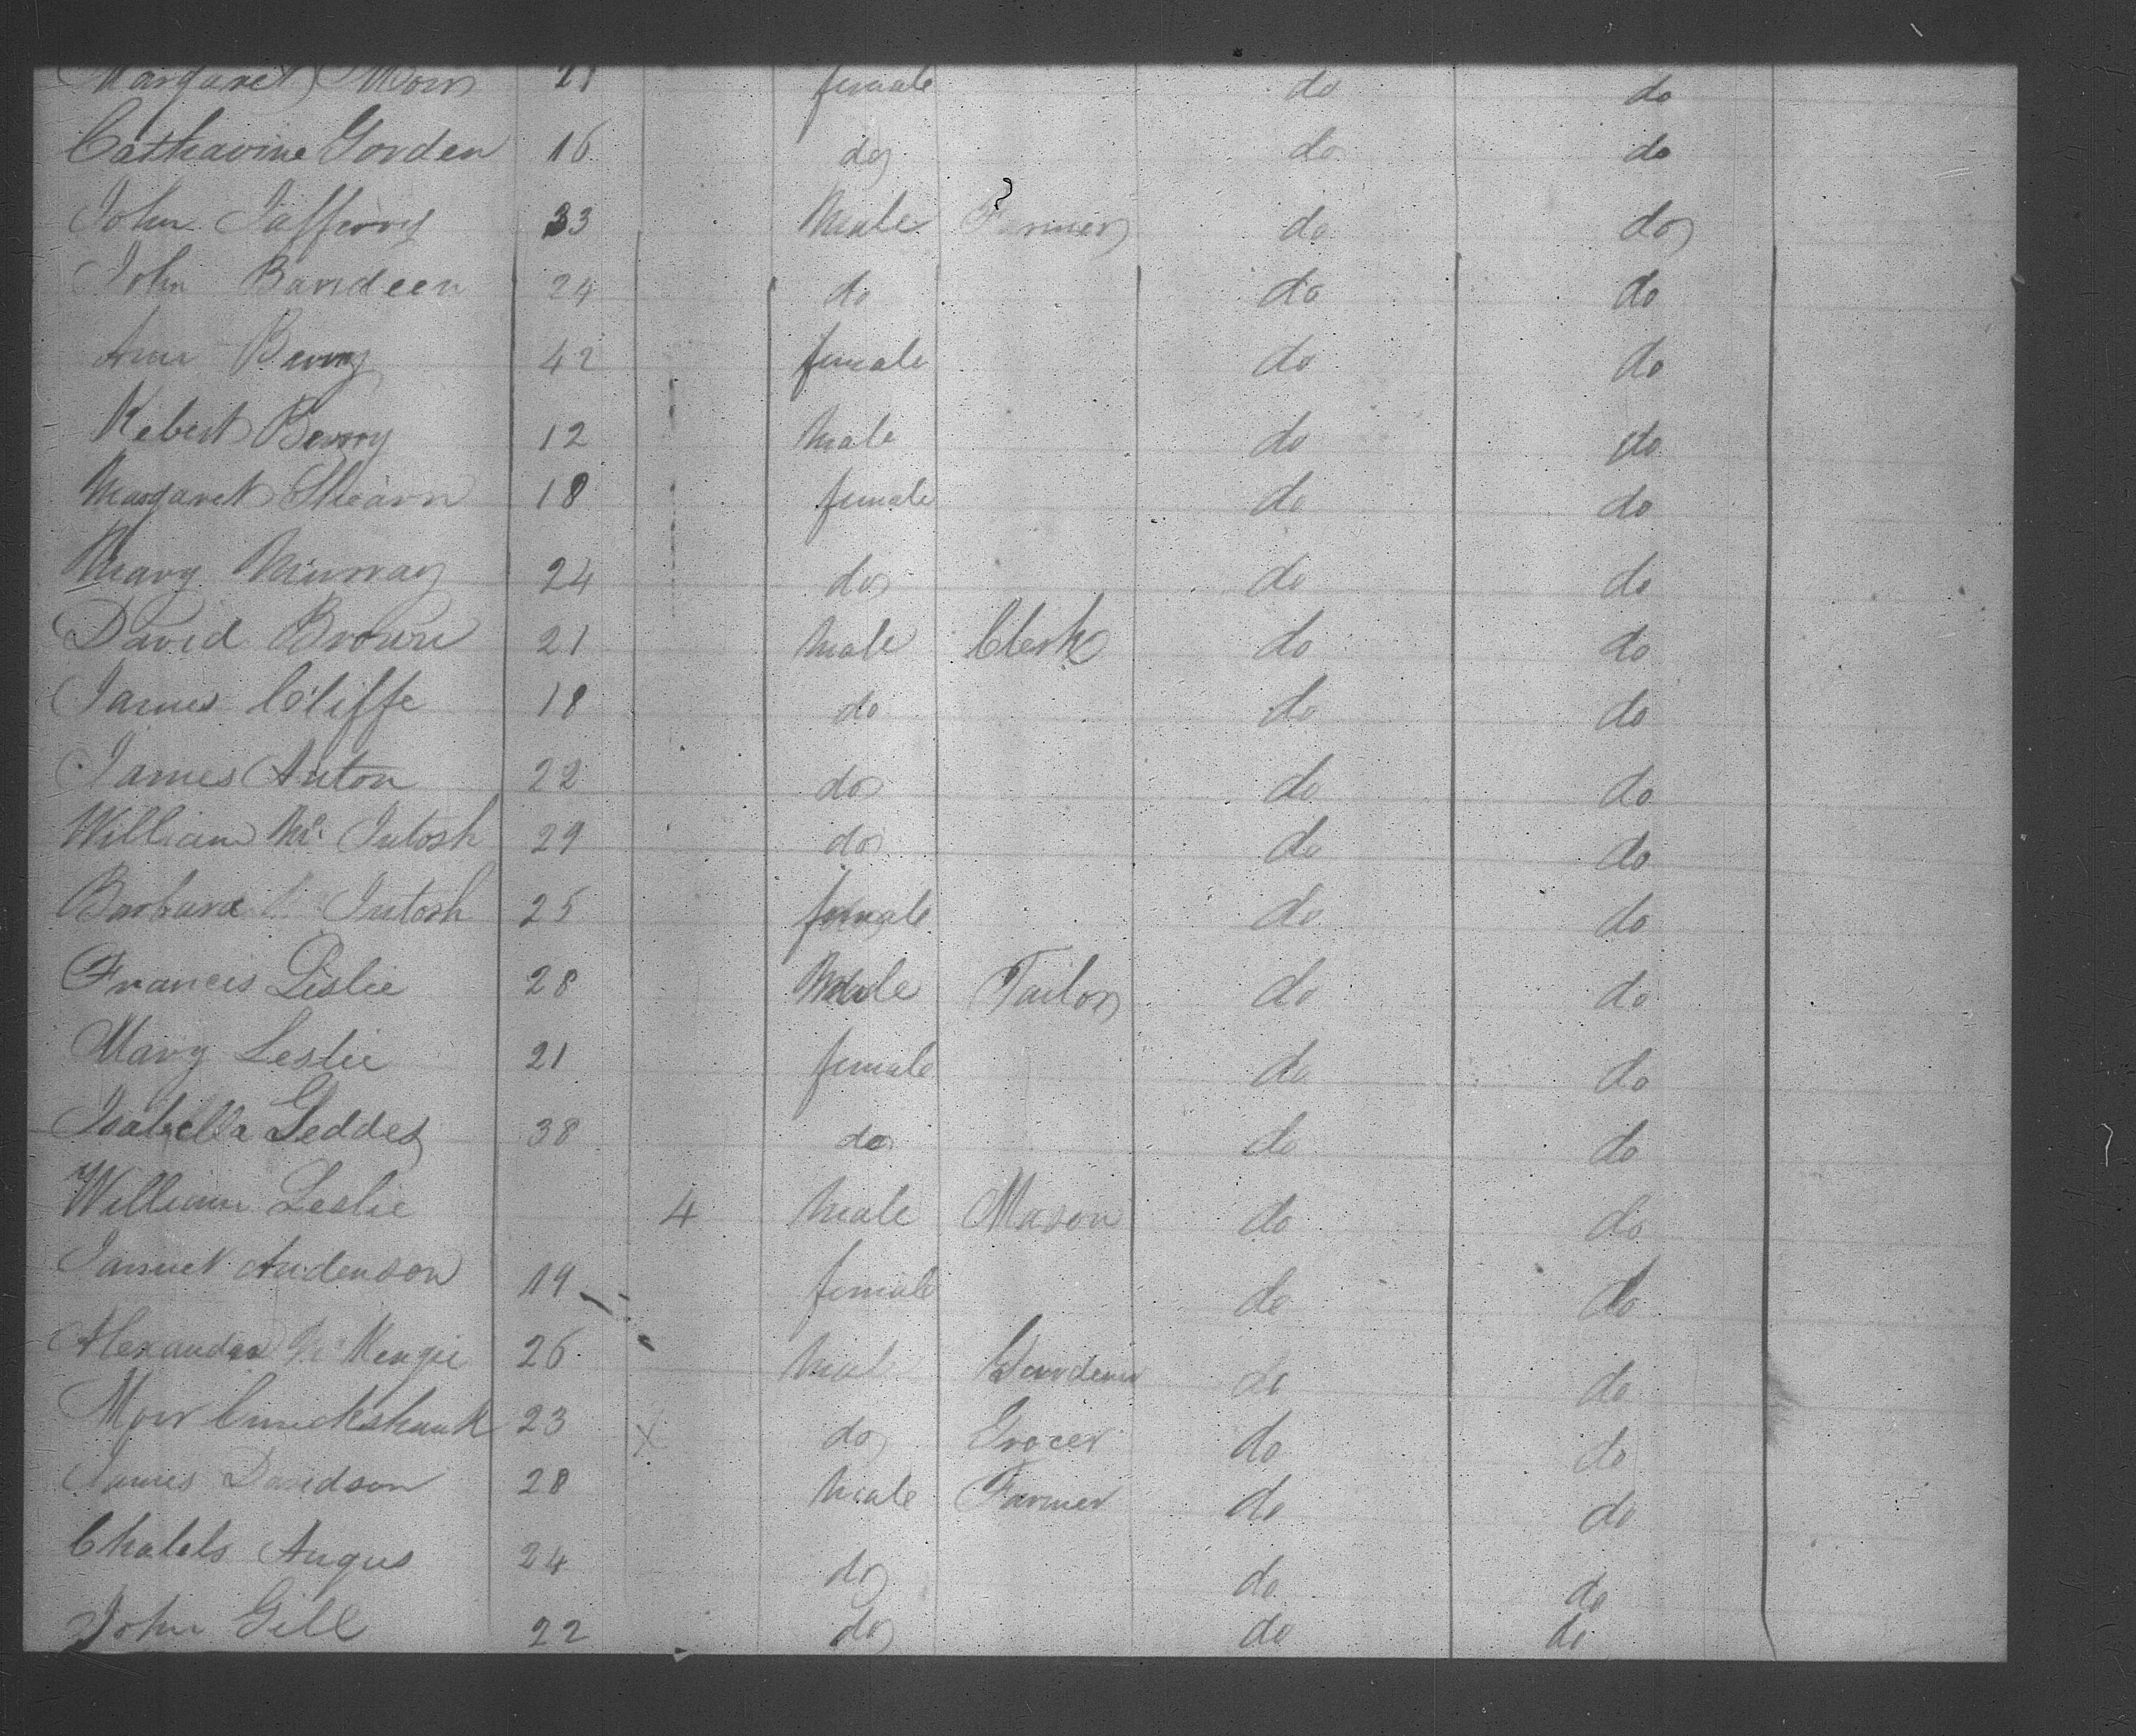 Margaret Moir 21 female do do
Catharine Gorden 16 do do do
John Jafferey 33 Male Farmer do do
John Bardeen 24 do do do
Ann Berry 42 female do do
Rebert Berry 12 Male do do
Margaret Shearn 18 female do do
Mary Murray 24 do do do
David Brown 21 Male Clerk do do
James Cliffe 18 do do do
James Anton 22 do do do
William Mc Intosh 29 do do do
Barbara Mc Intosh 25 female do do
Francis Lislie 28 Male Tailor do do
Mary Leslie 21 female do do
Isabella Geddes 38 do do do
William Leslie 4 Male Mason do do
Andenson 19 female do do
Alexander Mc Kengie 26 Male Gardener do do
Moir Cruickshank 23 x do Grocer do do
James Davidson 28 Male Farmer do do
Chalels Angus 24 do do do
John Gill 22 do do do